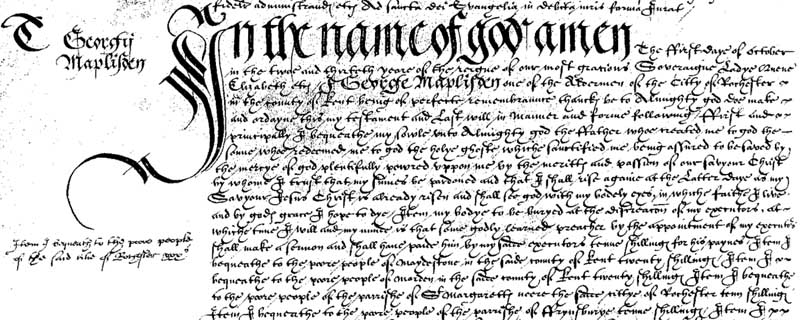 T Georgij
Maplisden
In the name of god amen The ffirst daye of October
in the twoe and thirteth yeare of the reigne of our most gratious Soveraigne Ladye Quene
Elizabeth etc I George Maplisden one of the Aldermen of the Citty of Rochester
in the county of Kent being of perfecte remembraunce thancks be to Almighty god doe make
and ordayne this my testament and Last will in Manner and forme following ffirst and
principally I bequeathe my sowle unto Almighty god the ffather whoe created me to god the
sonne whoe redeemed me to god the holye ghoste whiche sanctified me being assured to be saved by
the mercye of god plentifully powred uppon me by the meritts and passion of our savyour Christ
by whome I trust that my sinnes be pardoned and that I shall rise againe at the Latter daye as my
Savyour Jesus Christ is already risen and shall see god with my bodely eyes, in whiche faithe I live
and by gods grace I hope to dye Item my bodye to be buryed at the discreacon of my executors, at
whiche time I will and my minde is that some godly learned preacher by the appointment of my executors
shall make a sermon and shall have paide him by my saide executors tenne shillings for his paynes Item I
bequeathe to the poore people of Maydestone in the saide county of Kent twenty shillings Item I
bequeathe to the poore people of Marden in the saide county of Kent twenty shillings Item I bequeathe
to the poore people of the parrishe of St Margaretts neere the saide cittye of Rochester tenn shillings
Item I bequeathe to the poore people of the parrishe of ffryndsburye tenne shillings Item I
Item I bequeath to the pore people
of the said citie of Rochester xxx s